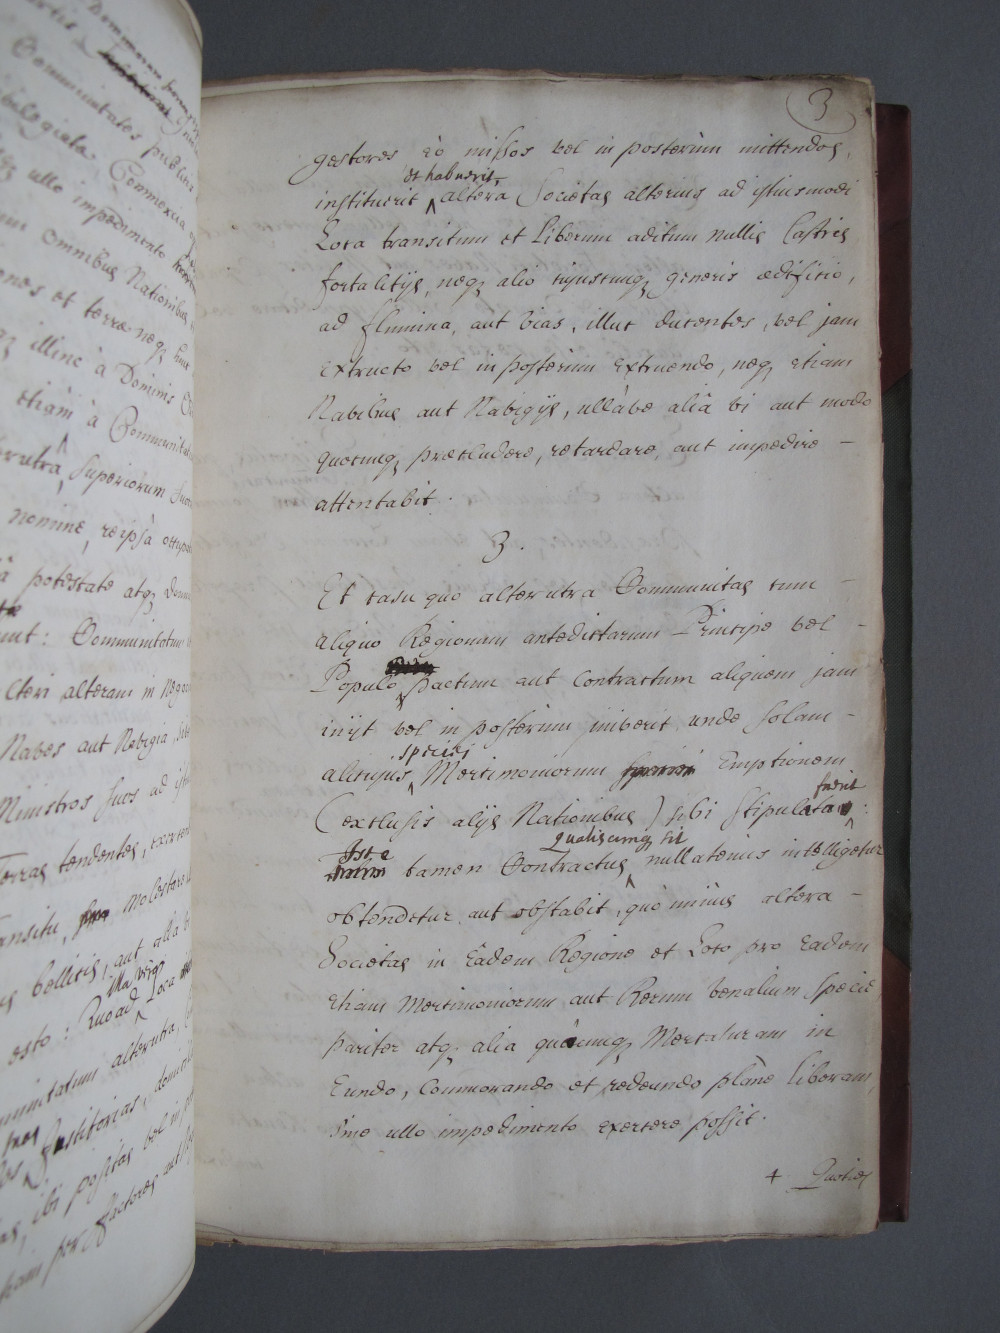 3
gestores eò missos vel in posterùm mittendos,
et habuerit,
instituerit altera Societas alterius ad istiusmodi
Loca transitum et Liberum aditum nullis Castris
fortalitijs, neq; alio cujuscunq; generis ædificio,
ad flumina, aut vias, illuc ducentes, vel jam
extructo vel in posterùm extruendo, neq; etiam
Navibus aut Navigijs, ullâve aliâ vi aut modo
quocunq; præcludere, retardare, aut impedire –
attentabit.
3.
Et casu quo alterutra Communitas cum –
aliquo Regionum antedictarum Principe vel –
Populo pactum aut Contractum aliquem jam
inijt vel in posterùm iniverit, unde solam –
speciei
alicujus Mercimoniorum Emptionem
fuerit
(exclusis alijs Nationibus) sibi stipulata :
Iste Qualiscumq; sit
tamen Contractus nullatenus intelligetur
obtendetur aut obstabit, quò minùs altera –
Societas in Eâdem Regione et Loco pro Eadem
Etiam Mercimoniorum aut Rerum venalium specie,
pariter atq; alia quâcunq; Mercaturam in
Eundo, Commorando et redeundo planè liberam,
sine ullo impedimento exercere possit.
+ Quoties
Communitates
Omnibus Nationibus
ones et terræ neq;
illinc à Dominis
etiam à Communitat
Superiorum suor
nomine, reipsâ occup
potestate atq; Domin
unt: Communitatum
cteri alteram in Negot
Naves aut Navigia,
Ministros suos ad ist
Terras tendentes, exercen
ansitu, molestare
bellicis, aut aliâ vi
esto: Quoad Loca
munitatum alterutra,
ibi positas vel in po
per factores aut